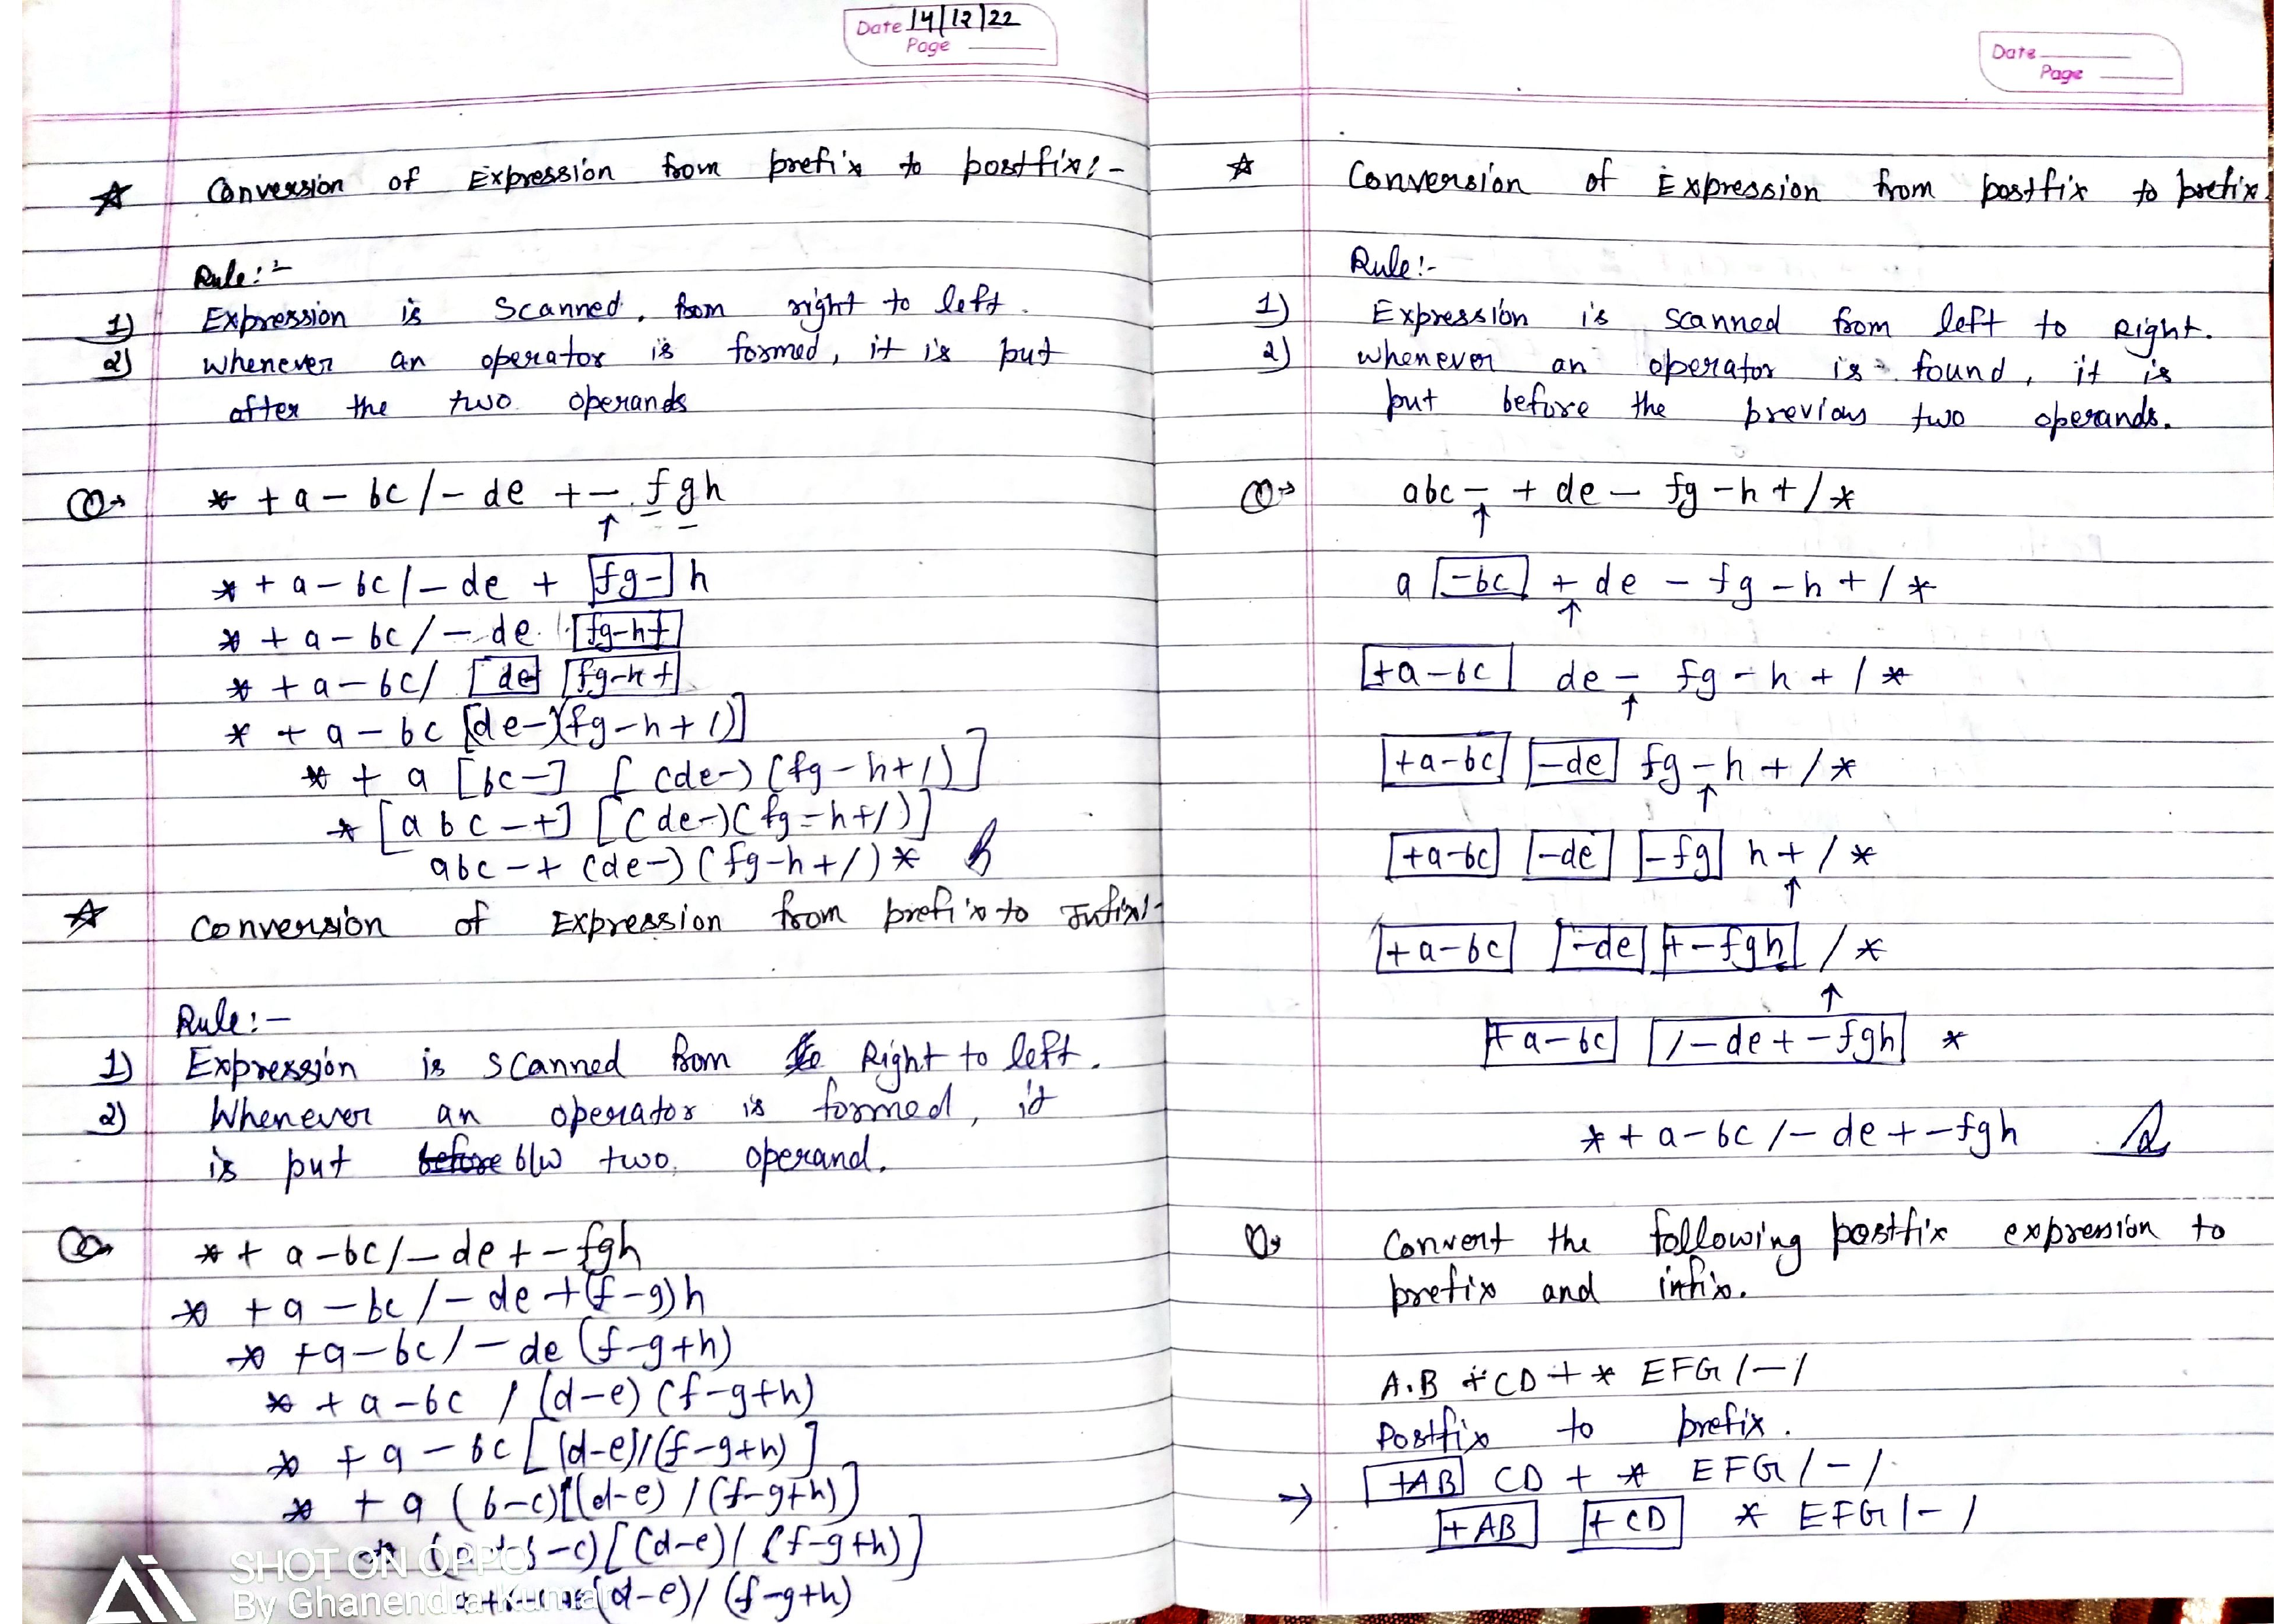 Date 14/12/22
Page
☆ Conversion of Expression from prefix to postfix:-
Rule:-
1) Expression is Scanned, from right to left.
2) whenever an operator is formed, it is put
after the two operands
Q→ * + a - bc / - de + - fgh
↑
* + a - bc / - de + [fg-] h
* + a - bc / - de [fg-h+]
* + a - bc / [de] [fg-h+]
* + a - bc [(de-)(fg-h+/)]
* + a [bc-] [(de-)(fg-h+/)]
* [abc-+] [(de-)(fg-h+/)]
abc-+ (de-)(fg-h+/) *
☆ Conversion of Expression from prefix to Infix:-
Rule:-
1) Expression is scanned from Right to left.
2) Whenever an operator is formed, it
is put before b/w two operand.
Q→ * + a - bc / - de + - fgh
* + a - bc / - de + (f-g)h
* + a - bc / - de (f-g+h)
* + a - bc / (d-e) (f-g+h)
* + a - bc [(d-e)/(f-g+h)]
* + a (b-c)[(d-e) / (f-g+h)]
* (a+b-c)[(d-e) / (f-g+h)]
(d-e) / (f-g+h)
SHOT ON OPPO
By Ghanendra Kumar
Date
Page
☆ Conversion of Expression from postfix to prefix
Rule:-
1) Expression is scanned from left to Right.
2) whenever an operator is found, it is
put before the previous two operands.
Q→ abc - + de - fg - h + / *
↑
a [-bc] + de - fg - h + / *
↑
[+a-bc] de - fg - h + / *
↑
[+a-bc] [-de] fg - h + / *
↑
[+a-bc] [-de] [-fg] h + / *
↑
[+a-bc] [-de] [+-fgh] / *
↑
[+a-bc] [/-de+-fgh] *
* + a - bc / - de + - fgh
Q→ Convert the following postfix expression to
prefix and infix.
A.B + CD + * EFG / - /
Postfix to prefix.
→ [+AB] CD + * EFG / - /
[+AB] [+CD] * EFG / - /